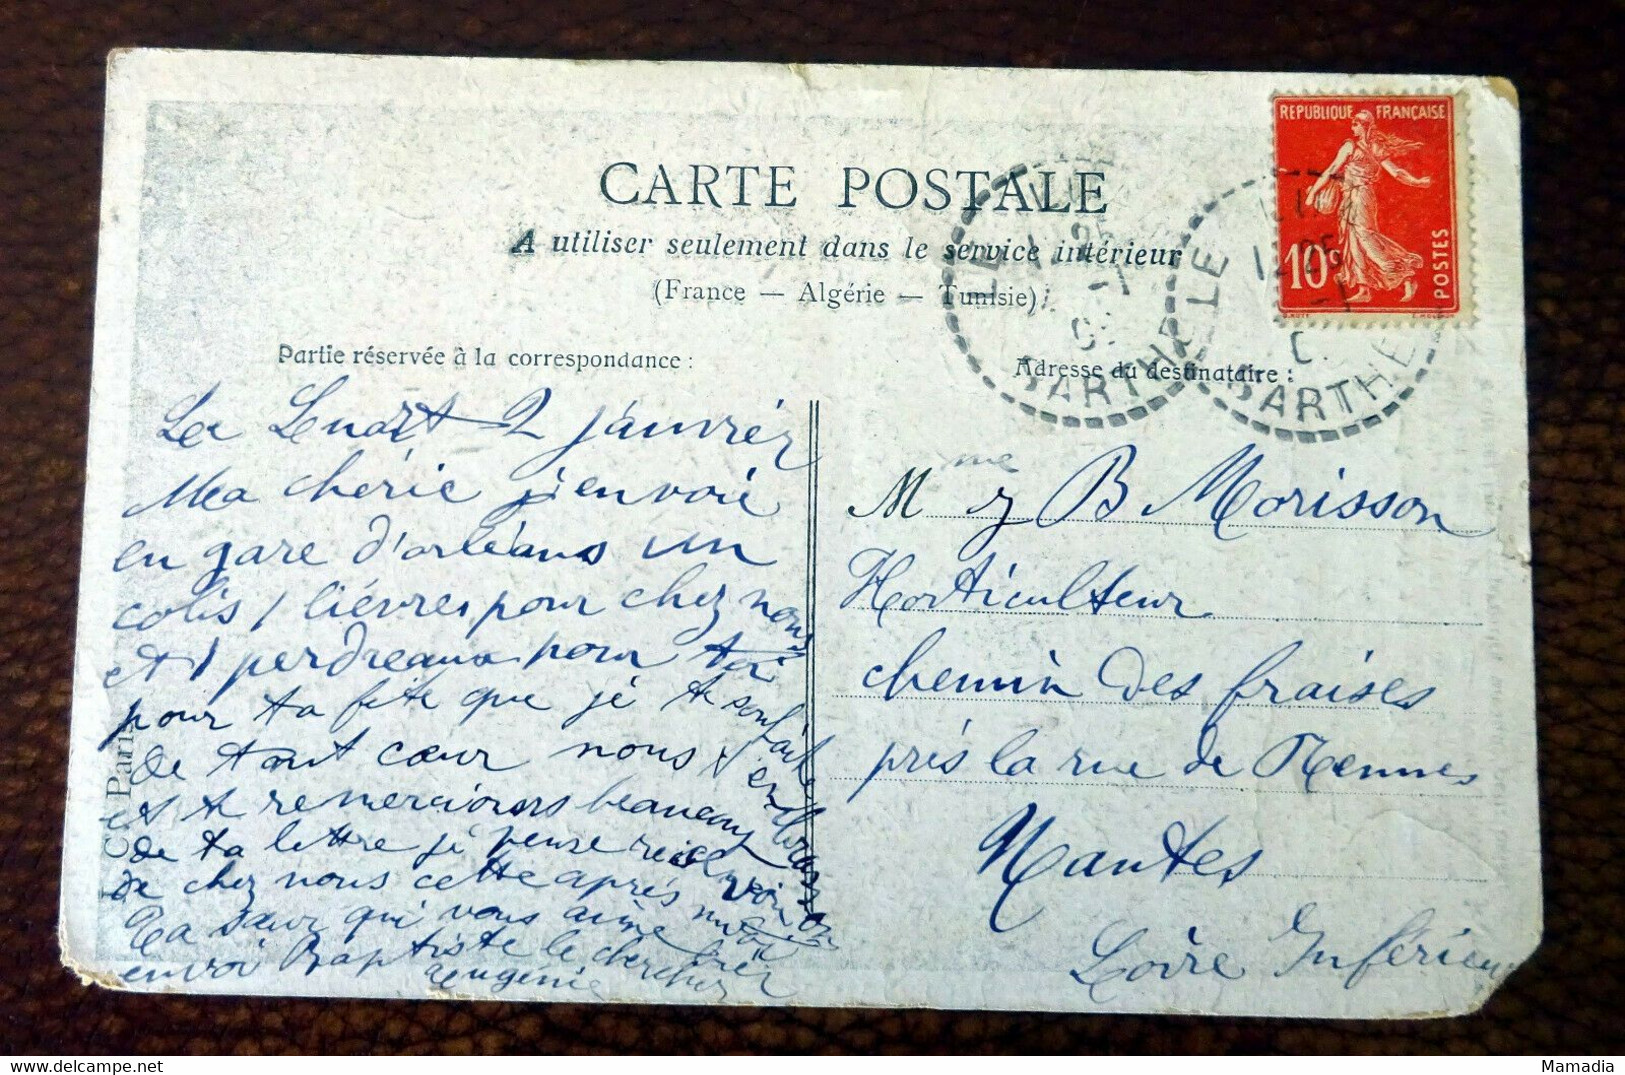 CARTE POSTALE
A utiliser seulement dans le service intérieur
(France — Algérie — Tunisie)
Partie réservée à la correspondance :
Adresse du destinataire :
REPUBLIQUE FRANÇAISE
10c
POSTES
SARTHE
SARTHE
2 janvier
Ma chérie j'envoie
en gare d'orléans un
colis 1 lièvre, pour chez nous
et 1 perdreaux pour toi
pour ta fête que je te souhaite
de tout cœur nous t'embrassons
et te remercions beaucoup
de ta lettre je pense
de chez nous cette après midi
Ta sœur qui vous aime bien
envoi Baptiste le chercher
eugénie
Mme B Morisson
Horticulteur
chemin des fraises
près la rue de Rennes
Nantes
Loire Inférieure
Mamadia